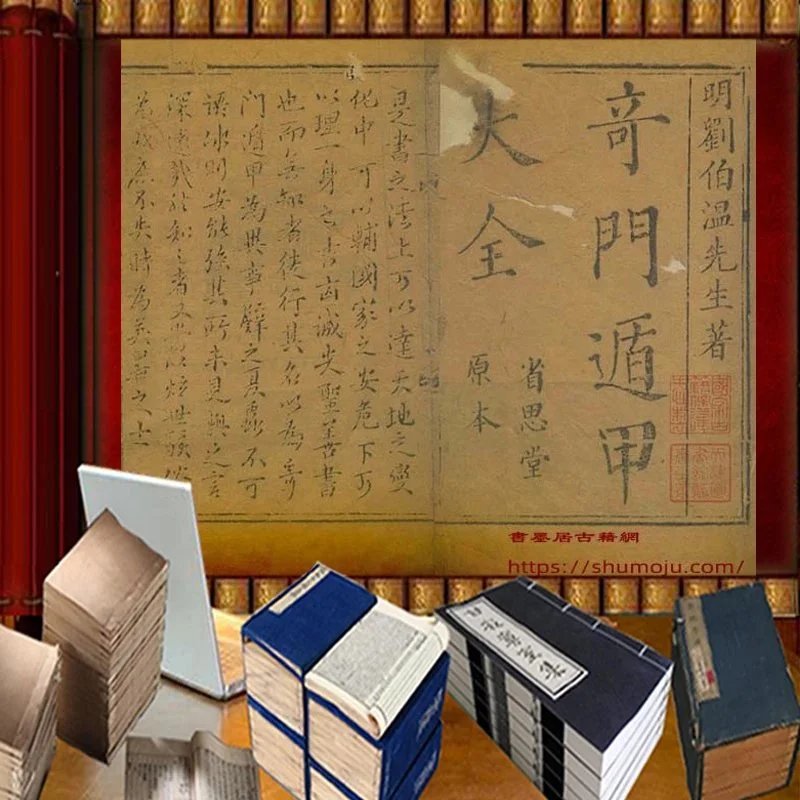 明劉伯溫先生著
奇門遁甲
省思堂
大全
原本
是書之法上可以達天地之變
化中可以輔國家之安危下可
以理一身之吉凶誠先聖善書
也而無知者徒行其名以為奇
門遁甲為異事譬之夏蟲不可
語冰則安能強其所未見與之言
深遠哉於知之者又
不失時為
書墨居古籍網
https://shumoju.com/